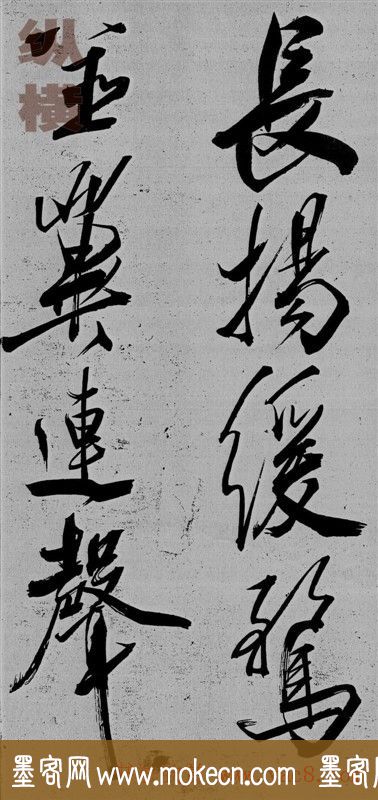 長揚緩騖
並翼連聲
纵横
墨客网 www.mokecn.com 墨客网